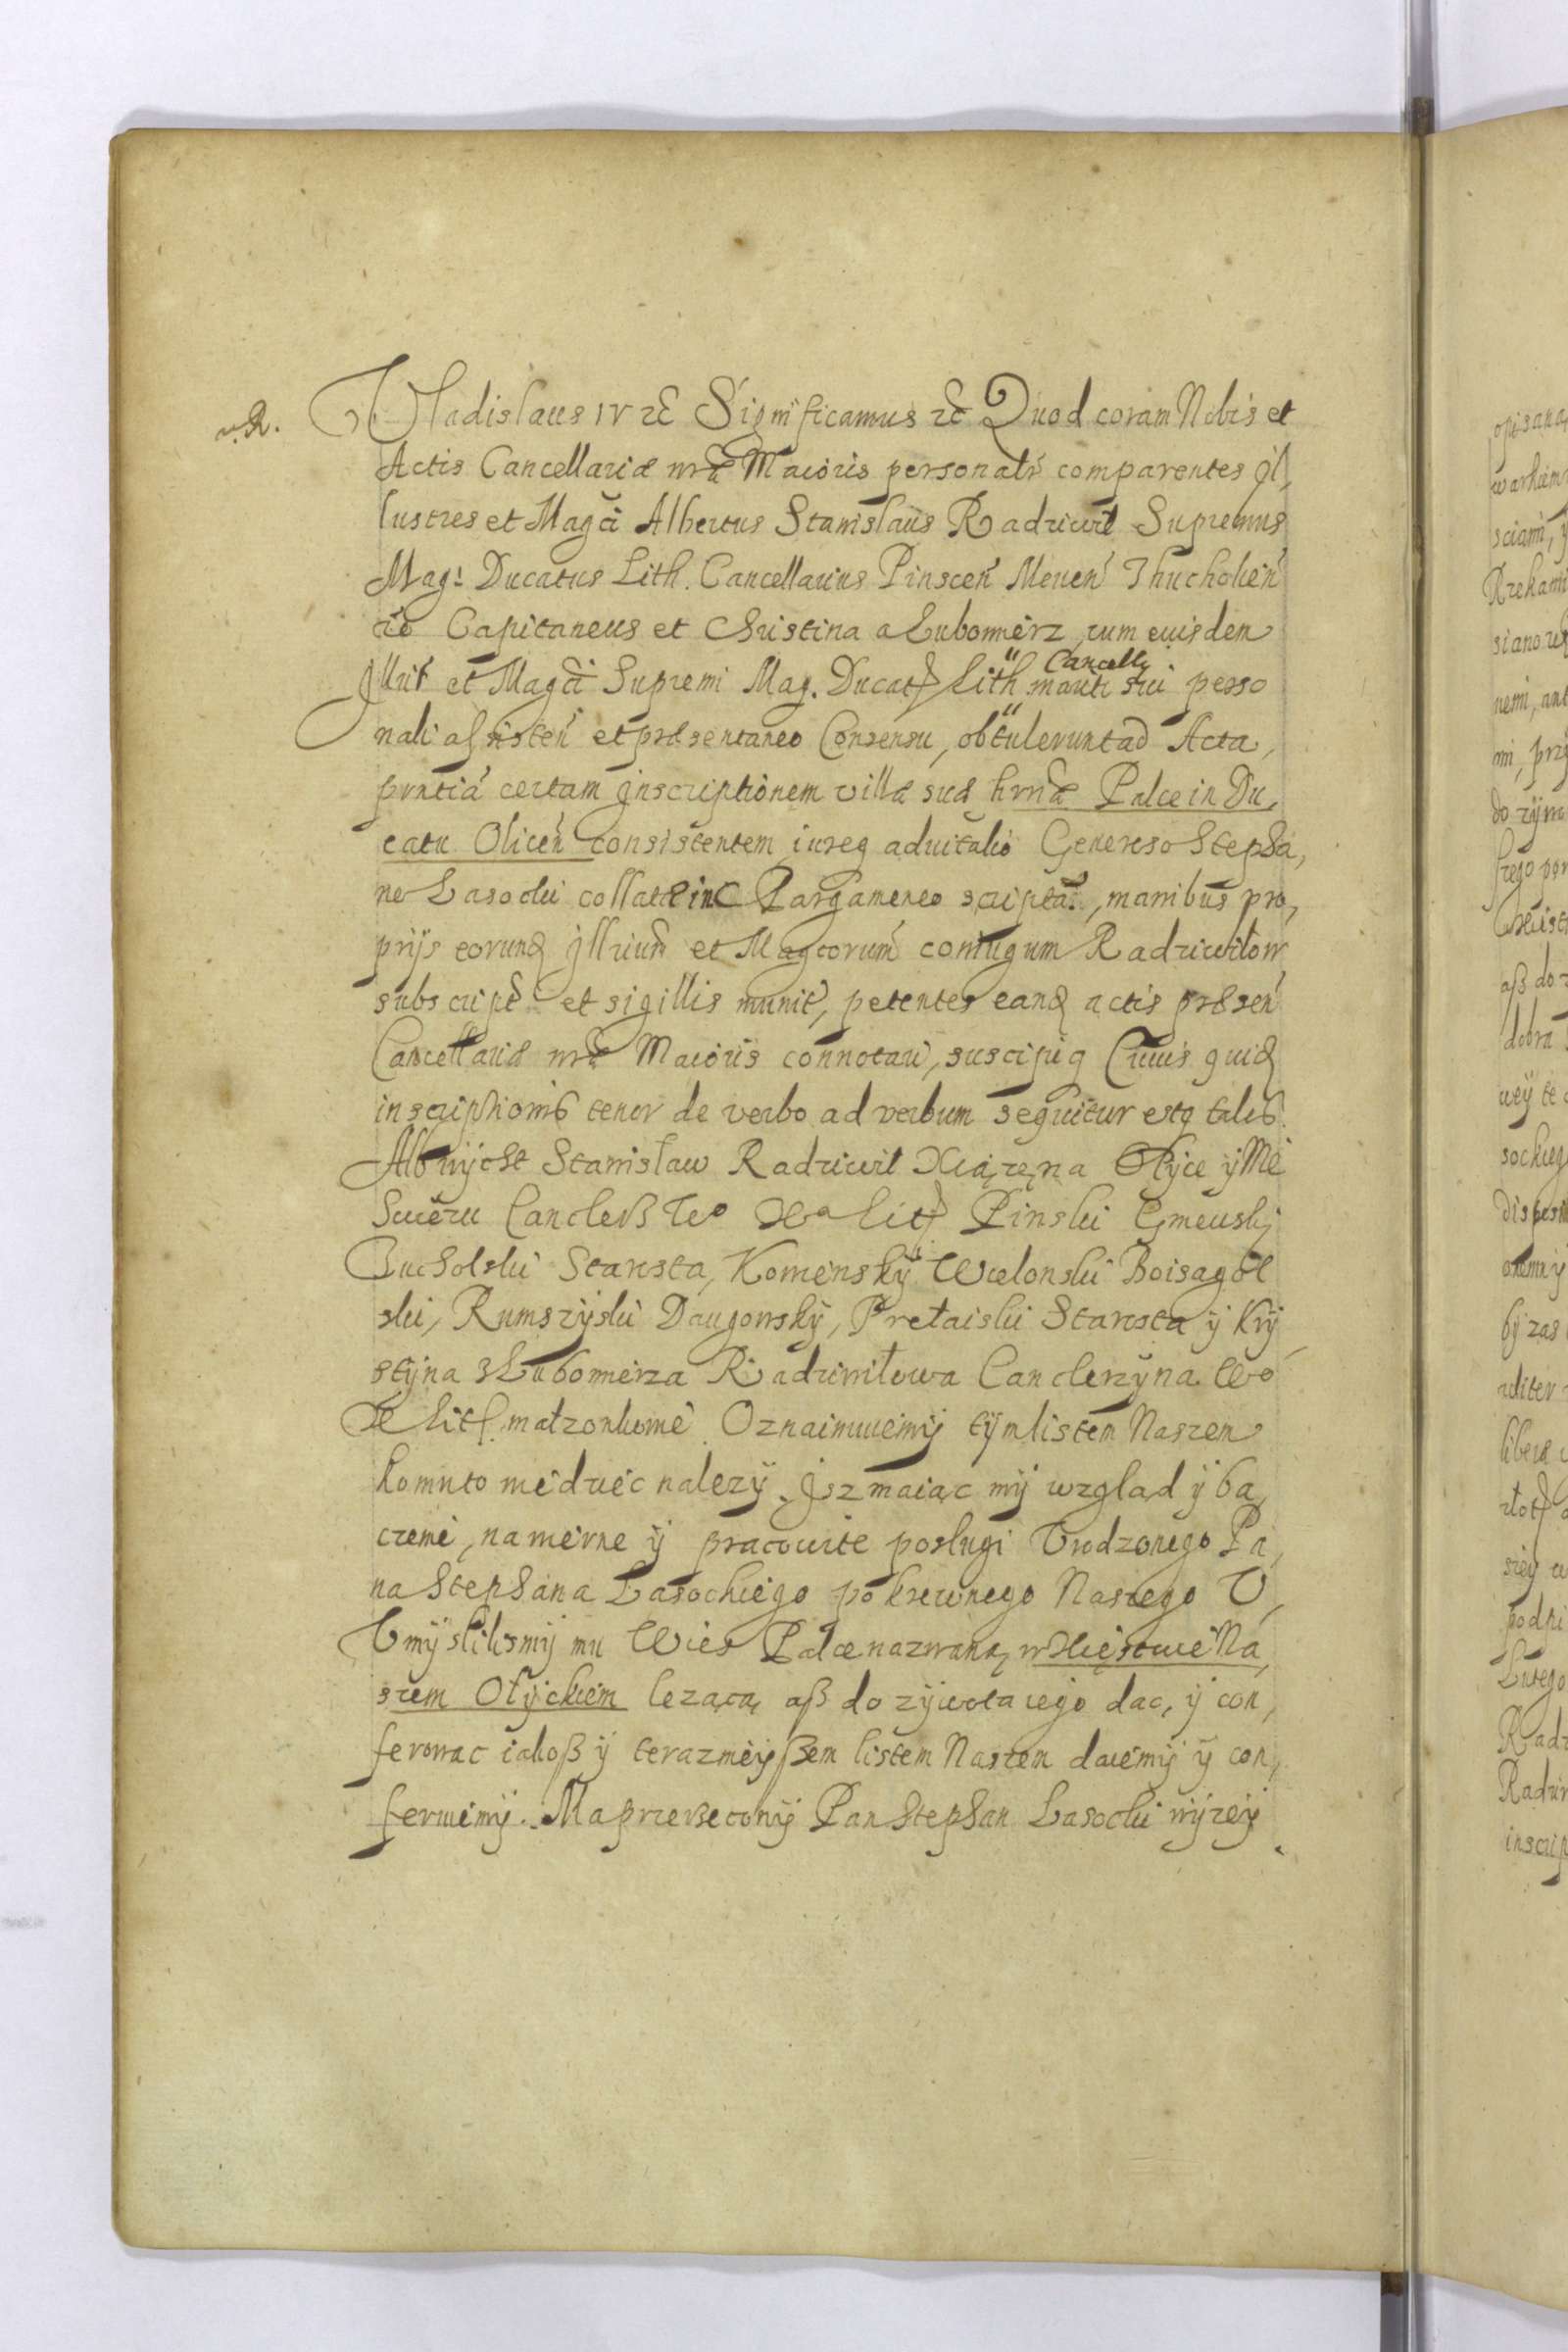 Vladislaus IV etc Significamus etc Quod coram Nobis et
Actis Cancellariæ nrae Maioris personalr comparentes Il,
lustres et Magci Albertus Stanislaus Radziwil Supremus
Mag: Ducatus Lith. Cancellarius Pinscen Meven Thucholien
etc Capitaneus et Christina a Lubomierz cum eiusdem
Cancell
Illris et Magci Supremi Mag. Ducat Lith mariti sui perso
nali assisten et præsentaneo Consensu, obtulerunt ad Acta
prntia certam Inscriptionem villæ suæ hrriæ Palce in Du,
catu Olicen consistentem iureq advitalio Generoso Stepha,
no Lasocki collatæ in Pargameneo scripta, manibus pro,
prijs eorund Illrium et Magcorum coniugum Radziwilow
subscript et sigillis munit, petentes eand actis præsen
Cancellariæ nræ Maioris connotari, suscipiq Cuius quid
inscriptionis tenor de verbo ad verbum sequitur estq talis.
Albrÿcht Stanislaw Radziwil Xiążę na Ołÿce ÿ Nie
Swiezu Canclerß Wo Xa Lit Pinski Gmewskj
Tucholski Starosta, Koniensky Wielonski Boisagol
ski, Rumszÿski Daugowskÿ, Pretaiski Starosta ÿ Krÿ
stÿna z Lubomierza Radziwiłowa Canclerzÿna Wo
X Lit małzonkowie Oznaimuiemÿ tÿm listem Naszem
komu to wiedziec nalezÿ. Isz maiąc mÿ wzgląd ÿ ba,
czenie, na wierne ÿ pracowite posługi Urodzonego Pa,
na Stephana Lasockiego pokrewnego Naszego U,
Umÿslilismÿ mu Wies Palce nazwaną w Xięstwie Na,
szem Ołÿckiem lezącą aß do zÿwota iego dac, ÿ con,
ferowac iakoß ÿ terazniejßem listem Naszem daiemÿ ÿ con,
feruiemÿ. Ma przerzeconÿ Pan Stephan Lasocki wÿzeÿ